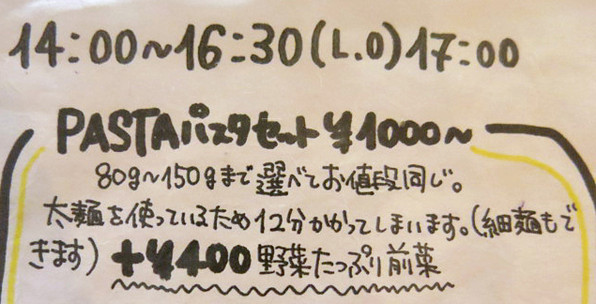 14:00~16:30(L.O)17:00
PASTAパスタセット¥1000~
80g~150gまで選べてお値段同じ。
太麺を使っているため12分かかってしまいます。(細麺もで
きます)+¥400野菜たっぷり前菜